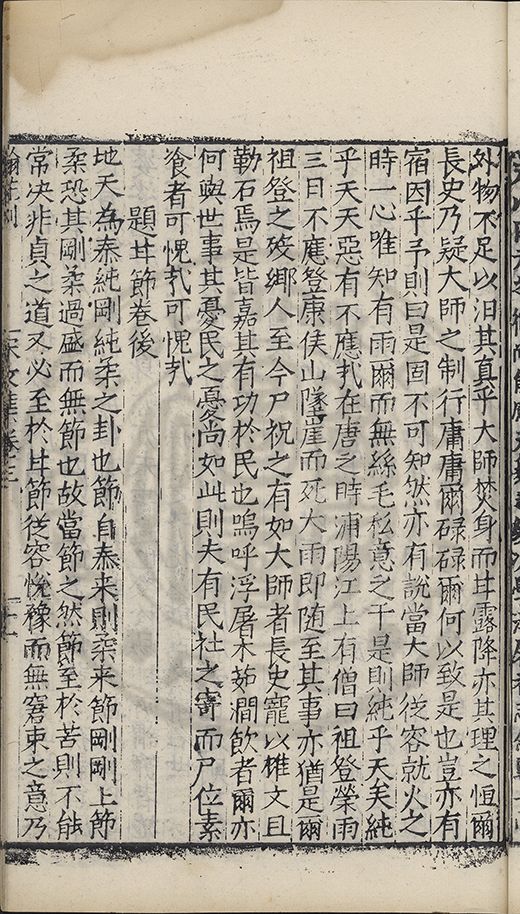 外物不足以汨其真乎大師焚身而甘露降亦其理之恒爾
長史乃疑大師之制行庸庸爾碌碌爾何以致是也豈亦有
宿因乎予則曰是固不可知然亦有說當大師從容就火之
時一心唯知有雨爾而無絲毛私意之干是則純乎天矣純
乎天天惡有不應㢤在唐之時浦陽江上有僧曰祖登禜雨
三日不應登康侯山墜崖而死大雨即随至其事亦猶是爾
祖登之歿鄉人至今尸祝之有如大師者長史寵以雄文且
勒石焉是皆嘉其有功於民也嗚呼浮屠木茹澗飲者爾亦
何與世事其憂民之憂尚如此則夫有民社之寄而尸位素
飡者可愧㢤可愧㢤
題甘節卷後
地天為泰純剛純柔之卦也節自泰来則柔来節剛剛上節
柔恐其剛柔過盛而無節也故當節之然節至於苦則不能
常决非貞之道又必至於甘節從容悅豫而無窘束之意乃